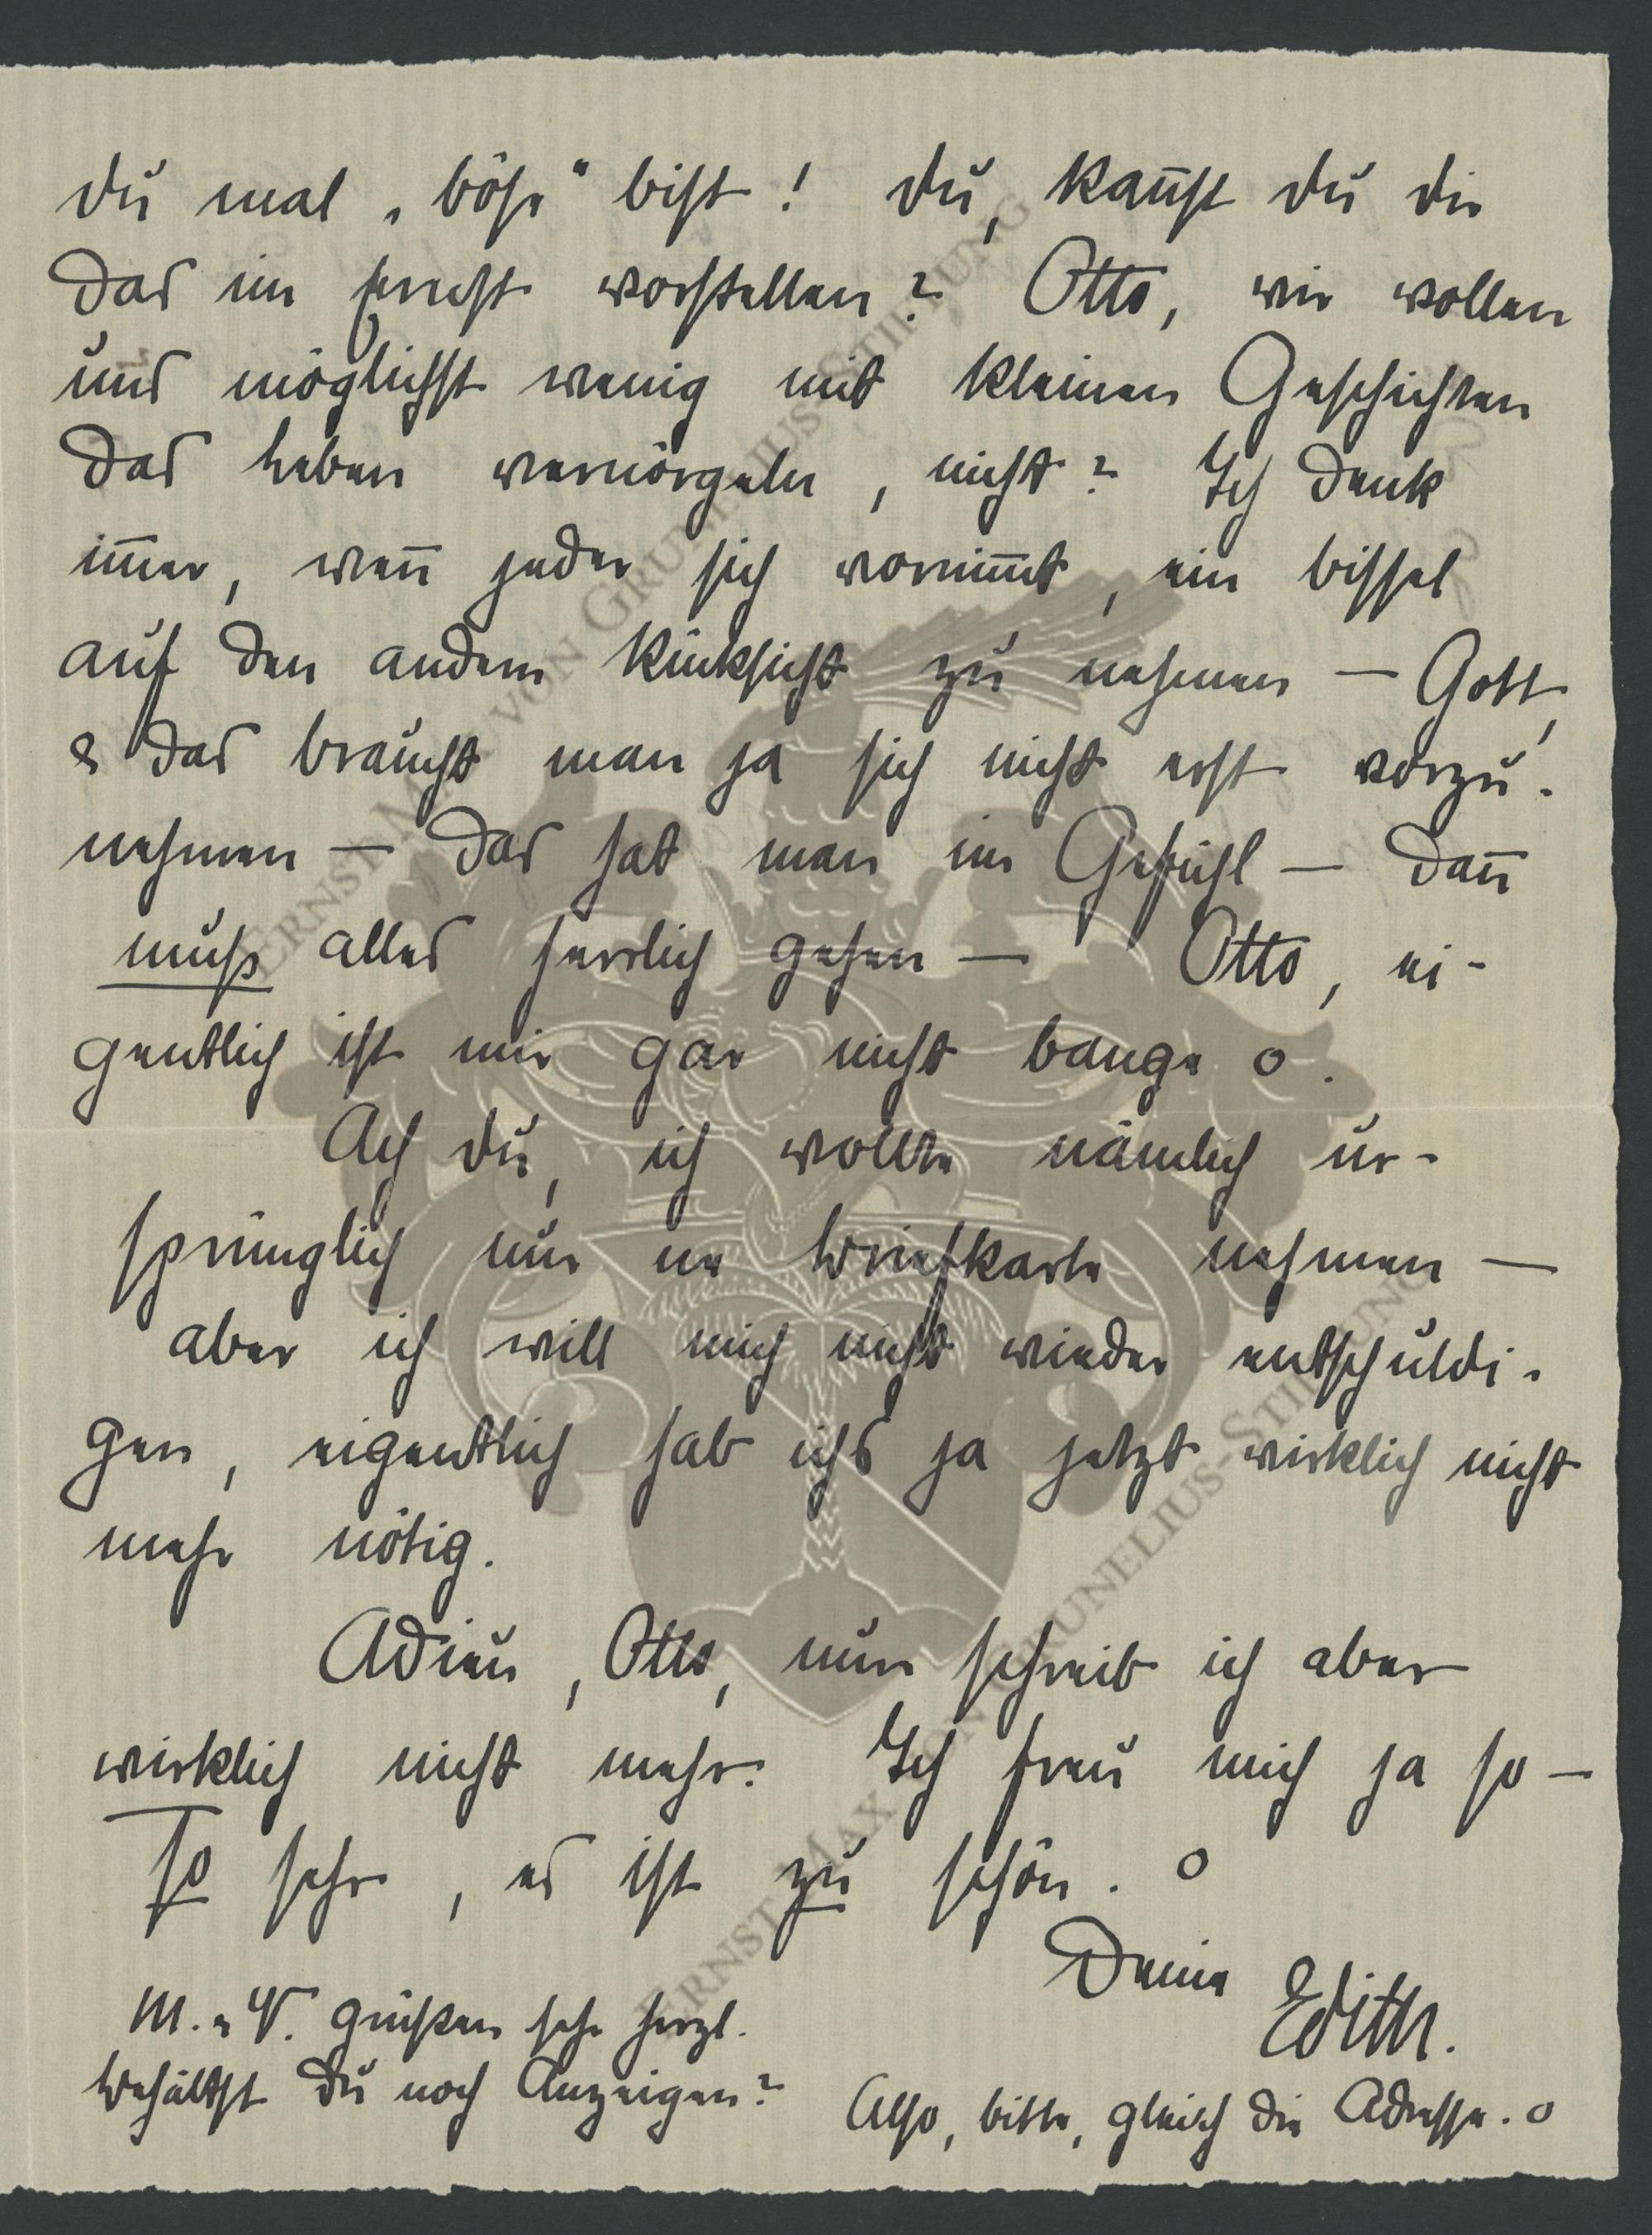 du mal „böse“ bist! Du, kannst du dir
das im Ernst vorstellen? Otto, wir wollen
uns möglichst wenig mit kleinen Geschichten
das Leben vernörgeln, nicht? Ich denk
im̅er, wen̅ jeder sich vornim̅t, ein bissel
auf den andern Rücksicht zu nehmen — Gott,
& das braucht man ja sich nicht erst vorzu-
nehmen — das hat man im Gefühl — dan̅
muß alles herrlich gehen — Otto, ei-
gentlich ist mir gar nicht bange o.
Ach du, ich wollte nämlich ur-
sprünglich nur ne Briefkarte nehmen —
aber ich will mich nicht wieder entschuldi-
gen, eigentlich hab ichs ja jetzt wirklich nicht
mehr nötig.
Adieu, Otto, nun schreib ich aber
wirklich nicht mehr. Ich freu mich ja so —
so sehr, es ist zu schön. o
Deine
Edith.
M. u V. grüßen sehr herzl.
Behältst Du noch Anzeigen?
Also, bitte, gleich die Adresse. o
ERNST MAX VON GRUNELIUS-STIFTUNG
ERNST MAX VON GRUNELIUS-STIFTUNG